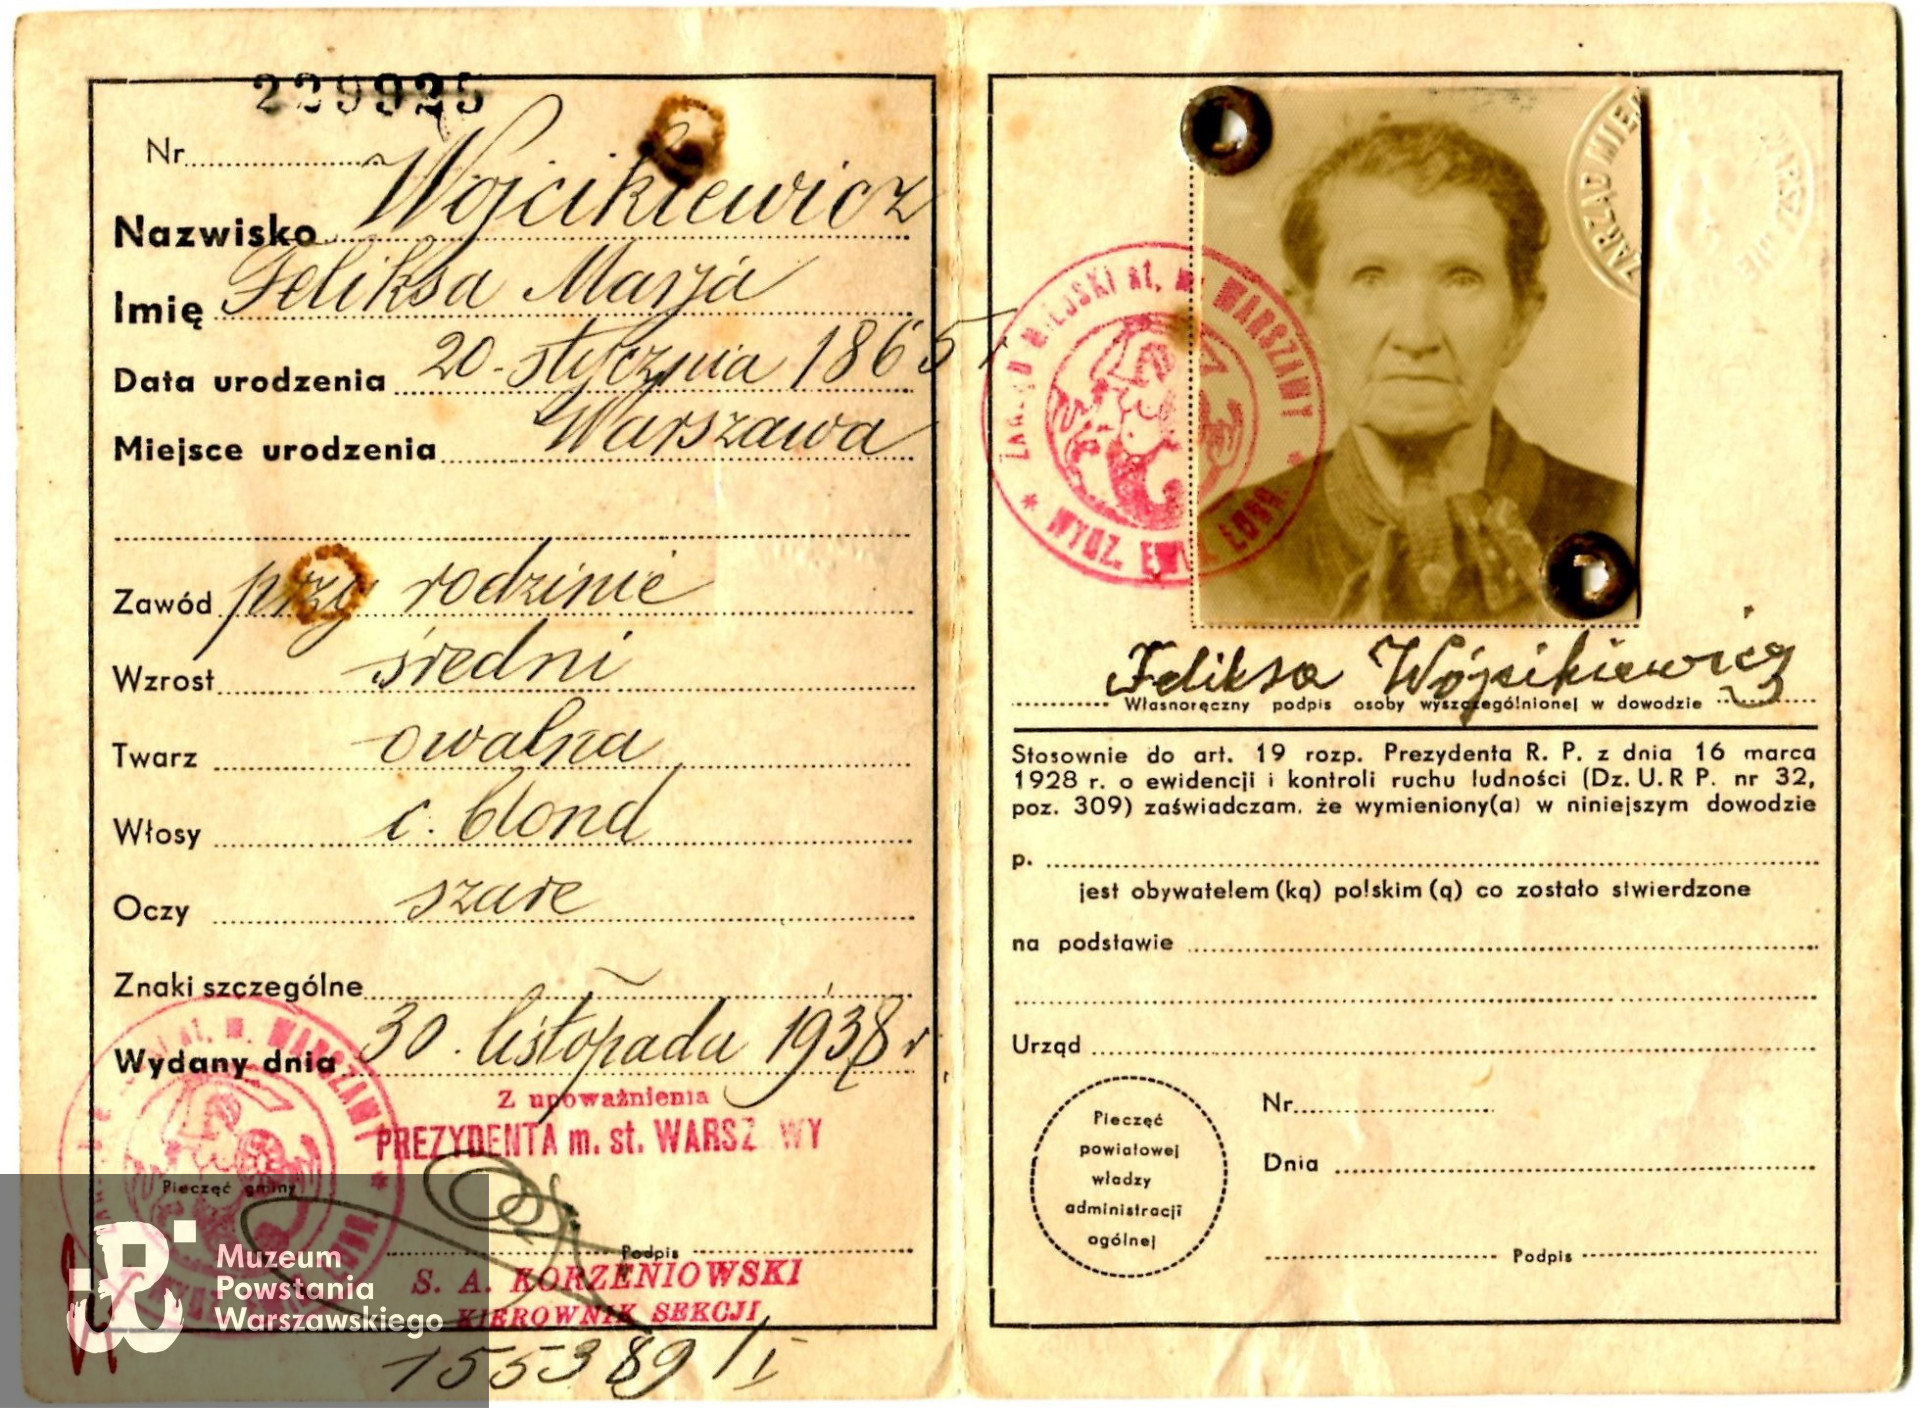 229925
Nr
Nazwisko Wójcikiewicz
Imię Feliksa Marja
Data urodzenia 20 stycznia 1865 r
Miejsce urodzenia Warszawa
Zawód przy rodzinie
Wzrost średni
Twarz owalna
Włosy c. blond
Oczy szare
Znaki szczególne
Wydany dnia 30 listopada 1938 r
Z upoważnienia
PREZYDENTA m. st. WARSZ WY
Pieczęć gminy
Podpis
S. A. KORZENIOWSKI
KIEROWNIK SEKCJI
155389/I
st. m. WARSZAWY
Muzeum
Powstania
Warszawskiego
ZARZĄD MIEJ
ZARZĄD MIEJSKI st. m. WARSZAWY
WYDZ. EWID. LUDN.
Feliksa Wójcikiewicz
Własnoręczny podpis osoby wyszczególnionej w dowodzie
Stosownie do art. 19 rozp. Prezydenta R. P. z dnia 16 marca
1928 r. o ewidencji i kontroli ruchu ludności (Dz. U. R P. nr 32,
poz. 309) zaświadczam, że wymieniony(a) w niniejszym dowodzie
p.
jest obywatelem (ką) polskim (ą) co zostało stwierdzone
na podstawie
Urząd
Pieczęć
powiatowej
władzy
administracji
ogólnej
Nr
Dnia
Podpis